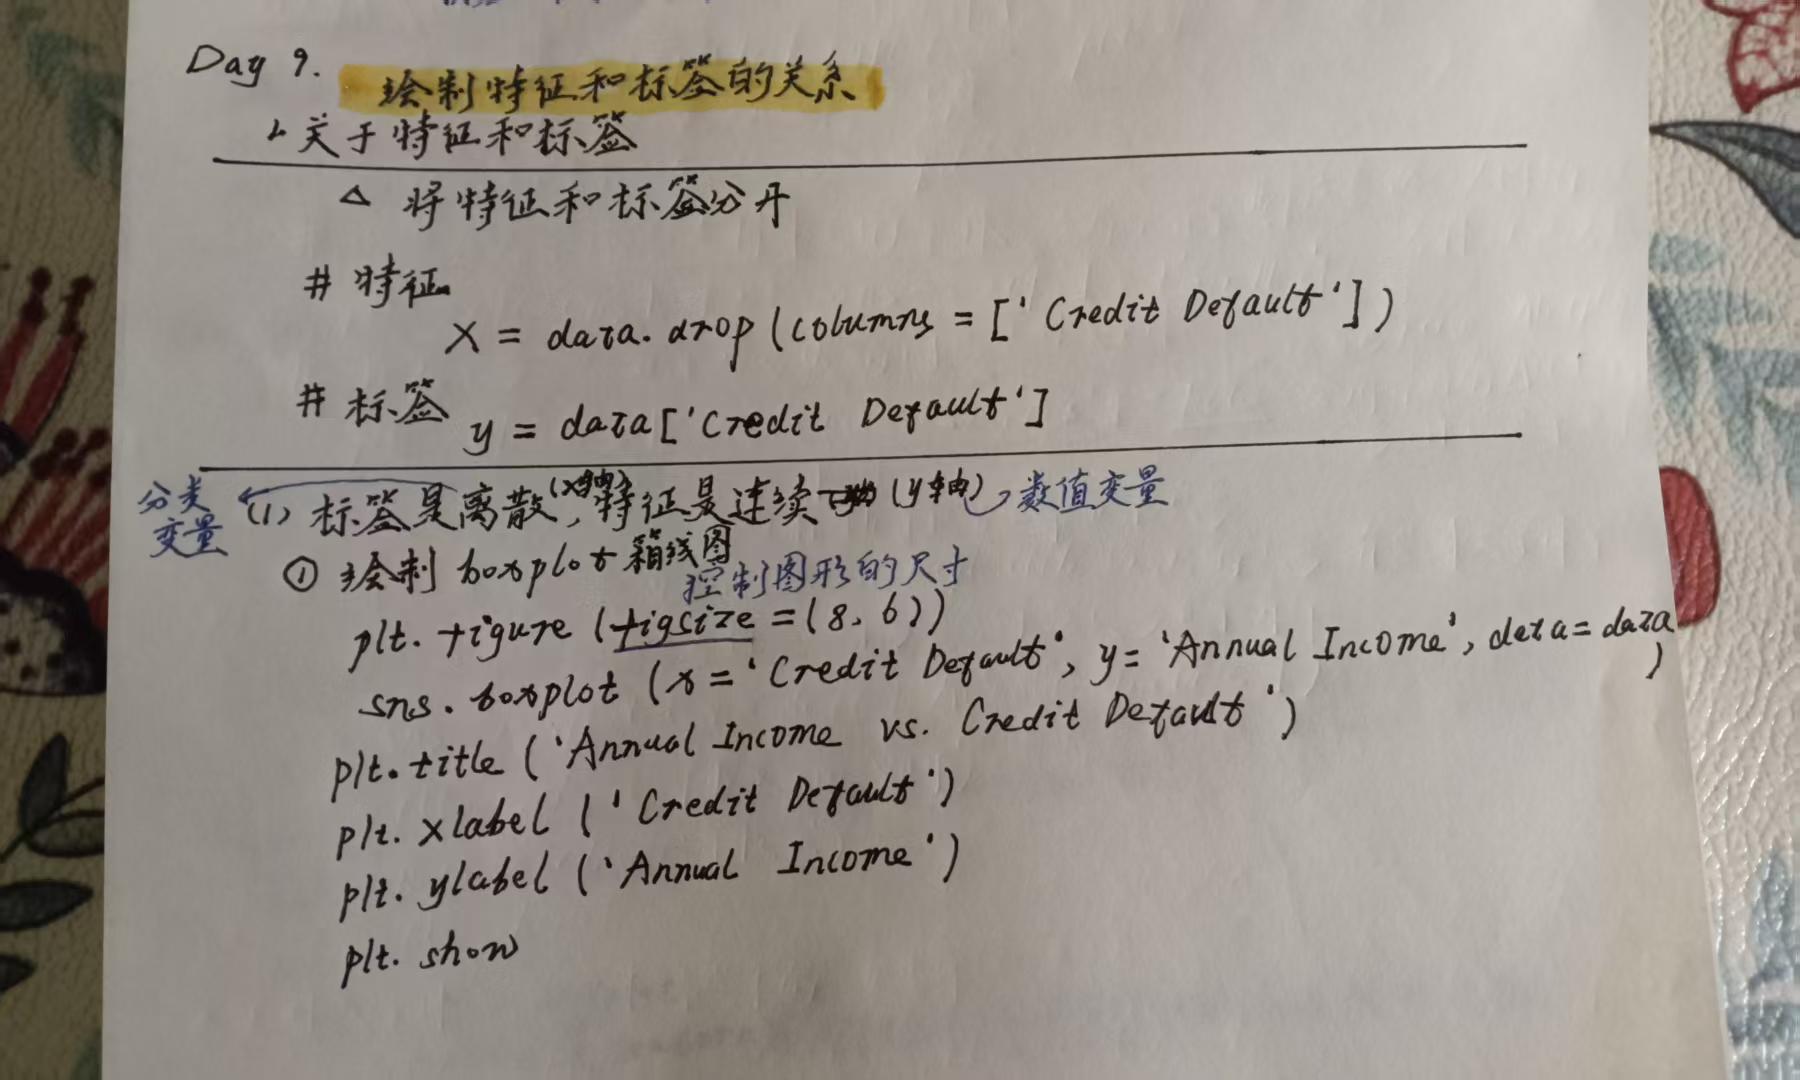 Day 9. 绘制特征和标签的关系
1. 关于特征和标签
△ 将特征和标签分开
# 特征
X = data.drop(columns = ['Credit Default'])
# 标签
y = data['Credit Default']
分类变量
(1) 标签是离散(x轴), 特征是连续 (y轴) 数值变量
① 绘制 boxplot 箱线图
控制图形的尺寸
plt. figure (figsize = (8, 6))
sns. boxplot (x = 'Credit Default', y = 'Annual Income', data = data)
plt. title ('Annual Income vs. Credit Default')
plt. xlabel ('Credit Default')
plt. ylabel ('Annual Income')
plt. show